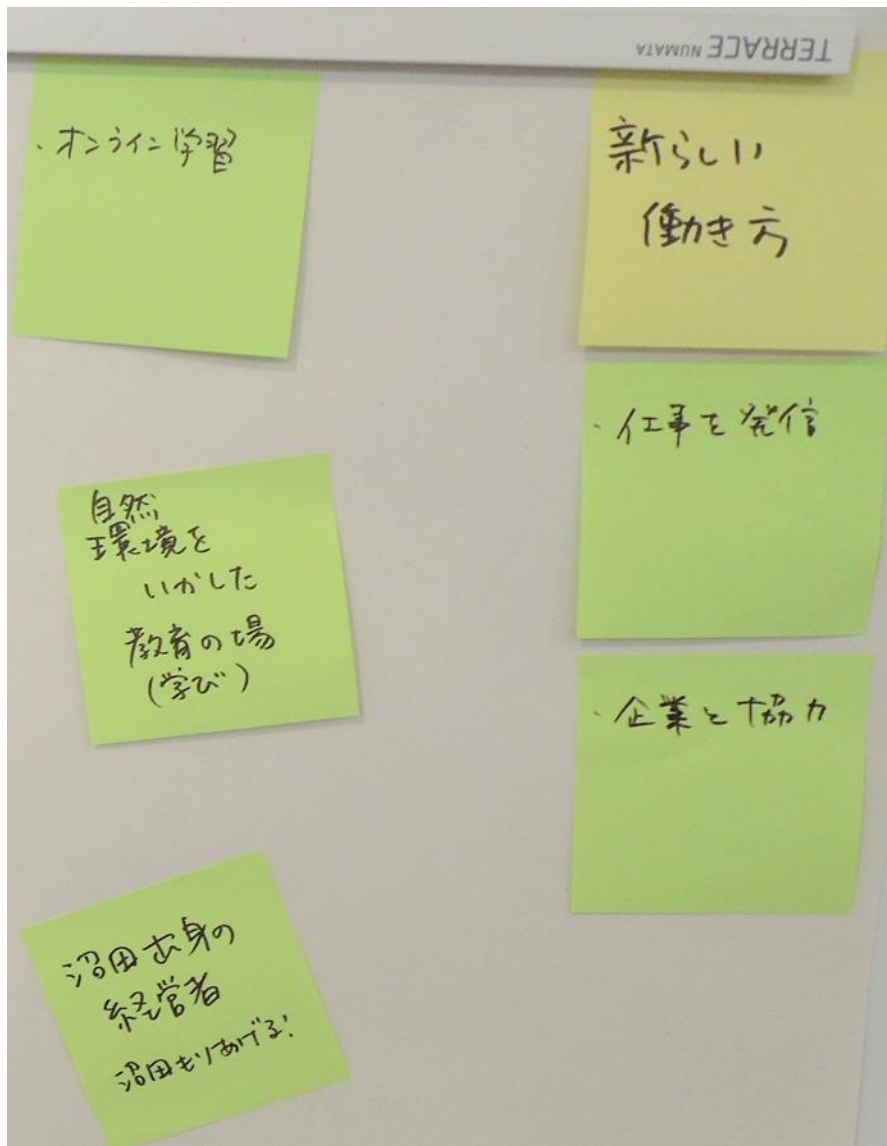 TERRACE NUMATA
・オンライン学習
自然
環境を
いかした
教育の場
(学び)
沼田出身の
経営者
沼田もりあげる!
新らしい
働き方
・仕事を発信
・企業と協力